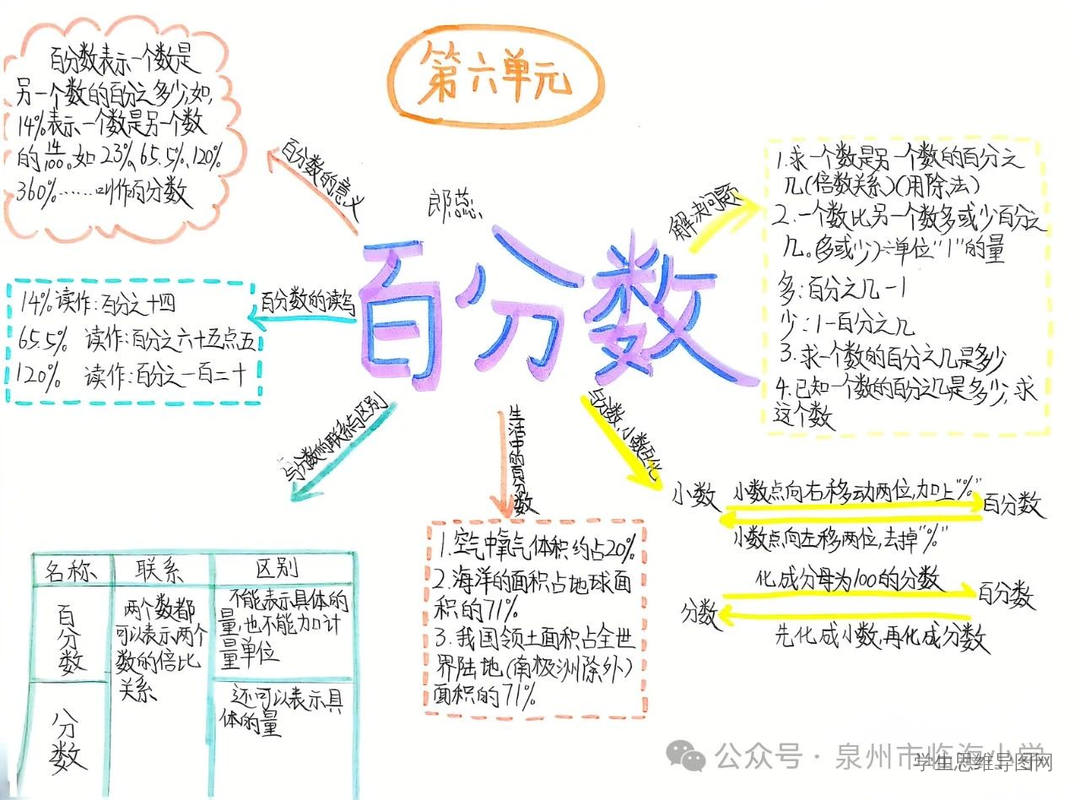 第六单元
百分数表示一个数是
另一个数的百分之多少,如,
14%表示一个数是另一个数
的14/100。如23%、65.5%、120%
360%……叫作百分数
百分数的意义
郎蕊
解决问题
百分数
1.求一个数是另一个数的百分之
几(倍数关系)(用除法)
2.一个数比另一个数多或少百分之
几。(多或少)÷单位"1"的量
多:百分之几-1
少:1-百分之几
3.求一个数的百分之几是多少
4.已知一个数的百分几是多少,求
这个数
百分数的读写
14%读作:百分之十四
65.5% 读作:百分之六十五点五
120% 读作:百分之一百二十
与分数的联系与区别
生活中的百分数
与分数,小数互化
名称 联系 区别
百分数
两个数都
可以表示两个
数的倍比
关系
不能表示具体的
量,也不能加计
量单位
分数
还可以表示具
体的量
1.空气中氧气体积约占20%
2.海洋的面积占地球面
积的71%
3.我国领土面积占全世
界陆地(南极洲除外)
面积的71%
小数 小数点向右移动两位,加上"%" 百分数
小数点向左移两位,去掉"%"
分数 化成分母为100的分数 百分数
先化成小数,再化成分数
公众号·泉州市临海小学
学生思维导图网